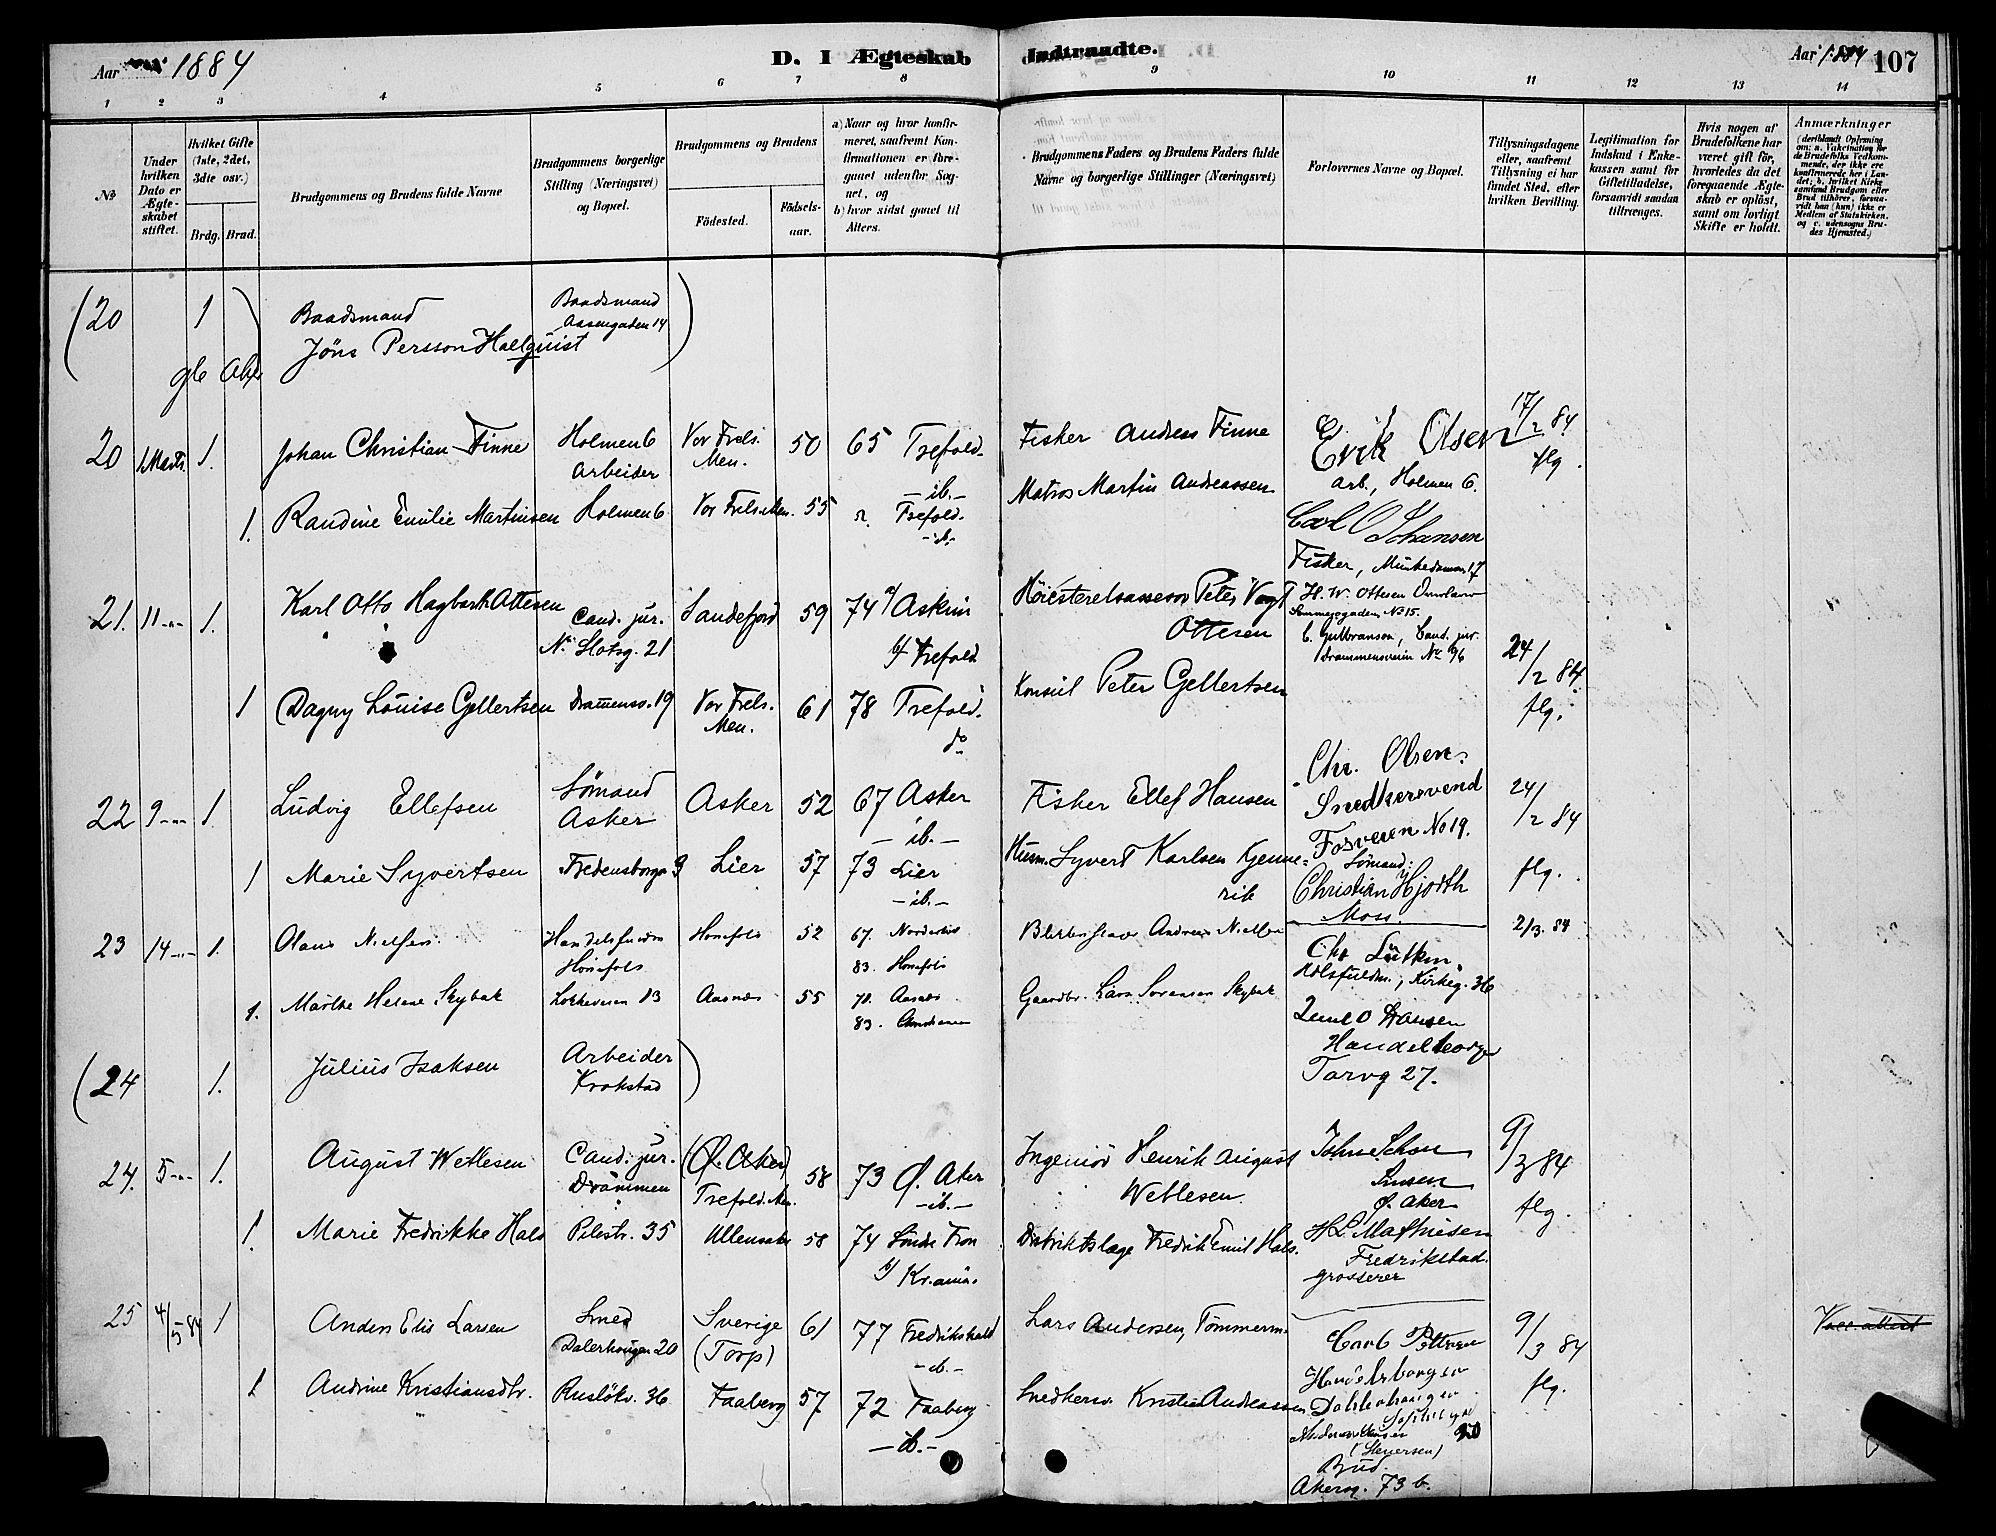 Aar 1884
D. I Ægteskab Indtraadte.
Aar 1884 107
1 2 3 4 5 6 7 8 9 10 11 12 13 14
№
Under hvilken Dato er Ægteskabet stiftet.
Hvilket Gifte (1ste, 2det, 3die osv.)
Brdg. Brud.
Brudgommens og Brudens fulde Navne
Brudgommens borgerlige Stilling (Næringsvei) og Bopæl.
Brudgommens og Brudens
Fødested.
Fødselsaar.
a) Naar og hvor konfirmeret, saafremt Konfirmationen er foregaaet udenfor Sognet, og
b) hvor sidst gaaet til Alters.
Brudgommens Faders og Brudens Faders fulde Navne og borgerlige Stillinger (Næringsvei)
Forlovernes Navne og Bopæl.
Tillysningsdagene eller, saafremt Tillysning ei har fundet Sted, efter hvilken Bevilling.
Legitimation for Indskud i Enkekassen samt for Giftetilladelse, forsaavidt saadan tiltrænges.
Hvis nogen af Brudefolkene har været gift før, hvorledes da det foregaaende Ægteskab er opløst, samt om lovligt Skifte er holdt.
Anmærkninger
(deriblandt Oplysning om: a. Vakcination for de Brudefolks Vedkommende, der ikke ere konfirmerede her i Landet; b. hvilket Kirkesamfund Brudgom eller Brud tilhører, forsaavidt han (hun) ikke er Medlem af Statskirken, og c. udensogns Brudes Hjemsted.)
(20 1 Baadsmand Baadsmand
Aasengaden 14
Jöns Persson Hallquist)
20 1 Marts. 1. Johan Christian Finne Holmen 6 Vor Frels. 50 65 Trefold. Fisker Andreas Finne Erik Olsen 17/2 84.
Arbeider Men. -ib.- arb., Holmen 6. flg.
1. Randine Emilie Martinsen Holmen 6 Vor Frels. Men. 55 Trefold. Matros Martin Andreassen Carl O Johansen
-ib.- Fisker, Munkedammen 17
21. 11 -"- 1. Karl Otto Hagbarth Ottesen Cand. jur. Sandefjord 59 74 a/ Askim Høiesteretsassessor Peter Vogt H. W. Ottesen
N. Slotsg. 21 b/ Trefold Ottesen No 15.
C. Gulbranson, Cand. jur.
Drammensveien No 96 24/2 84.
1 Dagny Louise Gellertsen Drammensv. 19 Vor Frels. 61 78 Trefold. Konsul Peter Gellertsen flg.
Men. do
22 9 -"- 1. Ludvig Ellefsen Sømand Asker 52 67 Asker Fisker Ellef Hansen Chr. Olsen. 24/2 84
Asker -ib.- Snedkersvend
Fosveien No 19.
1 Marie Syvertsen Fredensborgv 9 Lier 57 73 Lier Husm. Syvert Karlsen Kjenne= Sømand: flg.
-ib.- rik Christian Hjorth
Moss.
23 14 -"- 1. Olaus Nielsen Hønefos 52 67. Norderhov Andreas Nielsen 2/3. 84
Hønefos 83. Hønefos Chr Lütken.
Kirkeg. 36
1. Marthe Helene Skybak Løkkeveien 13 Aasnes 55 71. Aasnes Gaardbr. Lars Sørensen Skybak
83. Hansen
Handelsborger
(24 1. Julius Isaksen Arbeider) Torvg 27.
Krokstad
24. 5 -"- 1. August Wetlesen Cand. jur. (Ø. Aker) 58 73 Ø. Aker Ingeniør Henrik August 9/3 84
Drammen Trefold. Men. -ib.- Wetlesen. Ø. Aker flg.
1. Marie Fredrikke Hals Pilestr. 35 Ullensaker 58 74 Søndre Fron Distriktslæge Fredrik Emil Hals. H L Mathiesen
b/ Kr.ania. Fredrikstad.
grosserer
25 4/5 84 1 Anders Elis Larsen Smed Sverige 61 77 Fredrikshald Lars Andersen, Tømmerm. 9/3 84 Vacc. attest
Dælenengen 20 (Torp) -ib.- Handelsborger
1 Andrine Kristiansdtr. Rusløkv. 36 Faaberg 57 72 Faaberg Snedkersv. Kristian Andreassen flg.
-ib.- (Steversen)
Bud.
Akersg. 73 b.